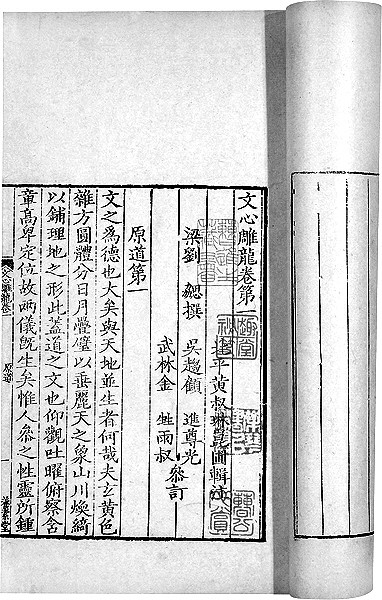 文心雕龍卷第一
梁劉 勰撰
平黃叔琳崑圃輯注
吳趨顧 進尊光
武林金 甡雨叔
參訂
原道第一
文之為德也大矣與天地並生者何哉夫玄黃色
雜方圓體分日月疊璧以垂麗天之象山川煥綺
以鋪理地之形此蓋道之文也仰觀吐曜俯察含
章高卑定位故兩儀既生矣惟人參之性靈所鍾
文心雕龍卷一
原道
一